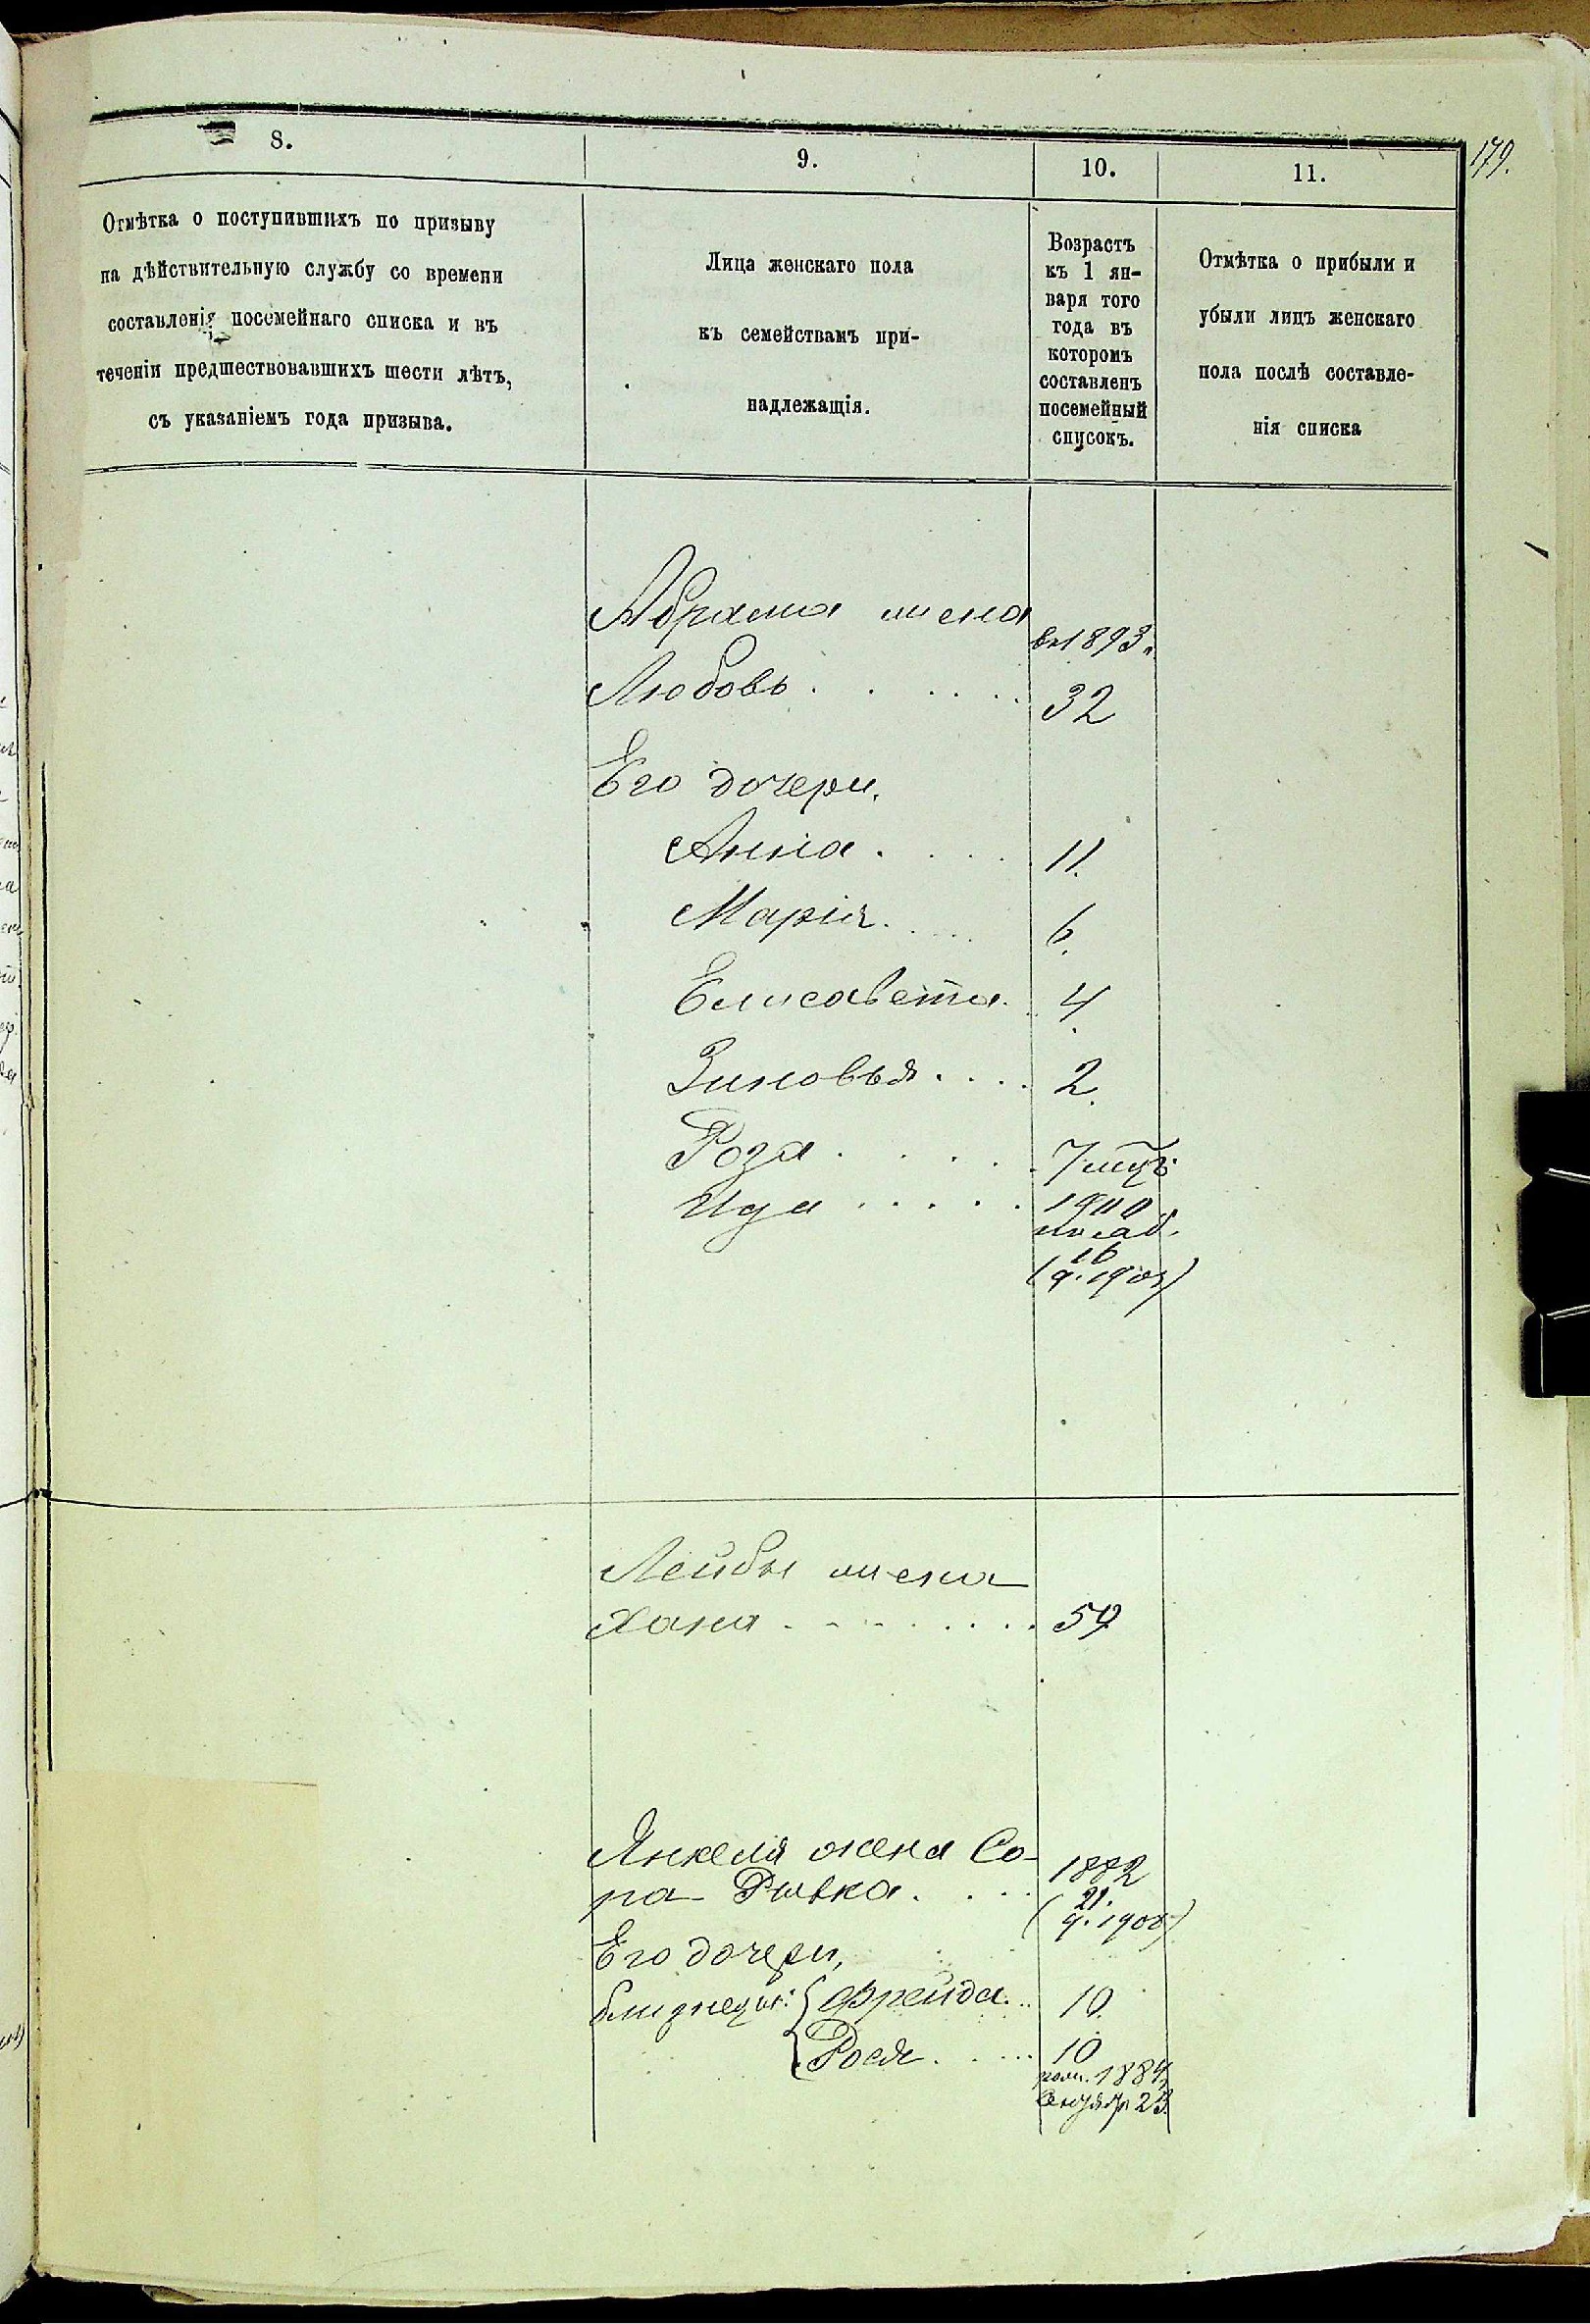 179.
8.
9.
10.
11.
Отмѣтка о поступившихъ по призыву
на дѣйствительную службу со времени
составленія посемейнаго списка и въ
теченіи предшествовавшихъ шести лѣтъ,
съ указаніемъ года призыва.
Лица женскаго пола
къ семействамъ при-
надлежащія.
Возрастъ
къ 1 ян-
варя того
года въ
которомъ
составленъ
посемейный
списокъ.
Отмѣтка о прибыли и
убыли лицъ женскаго
пола послѣ составле-
нія списка
Абрама жена
въ 1893.
Любовь . . . . . 32
Его дочери.
Анна . . . . 11.
Марія . . . . 6.
Елисавета . . 4.
Зиновья . . . . 2.
Роза . . . . . 7 мцъ
Ида . . . . . 1900
16
Лейбы жена
Хана . . . . . . . . 59
Янкеля жена Со-
ра-Ривка . . . . 1882
21.
Его дочери,
близнецы: { Фрейда . . 10.
{ Рося . . . . . 10
1884
23.